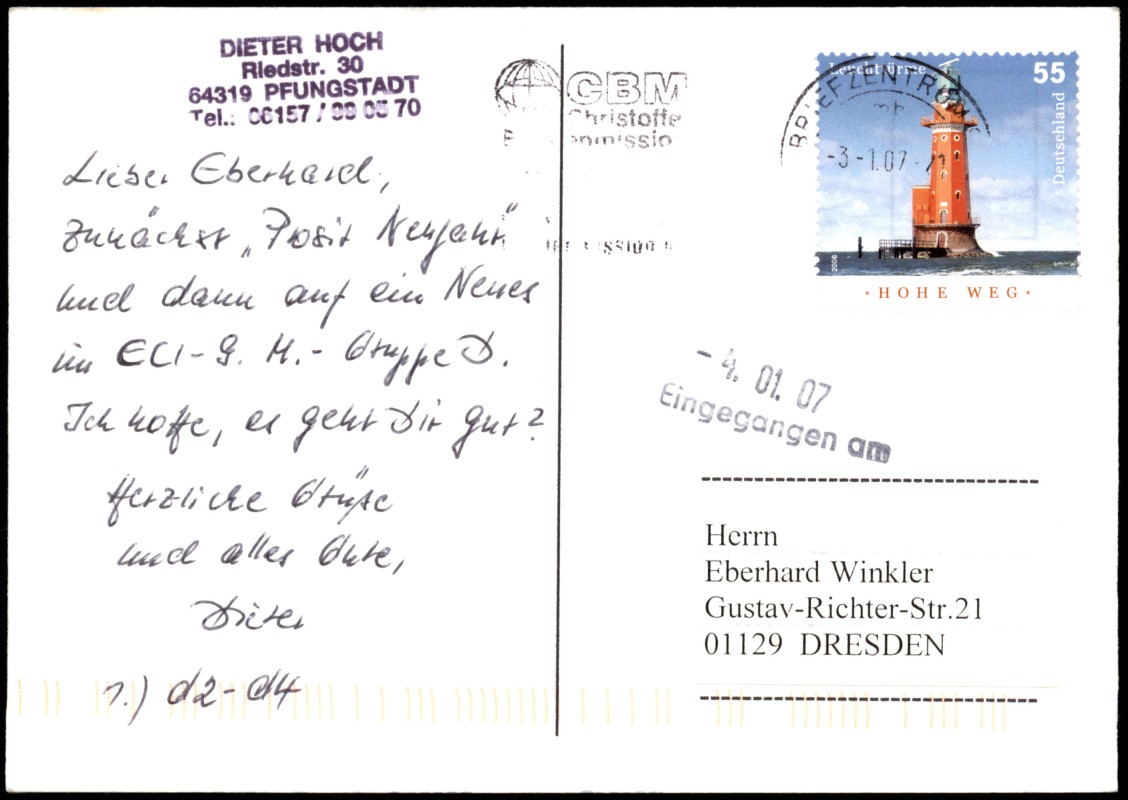 DIETER HOCH
Riedstr. 30
64319 PFUNGSTADT
Tel.: 06157 / 99 05 70
Lieber Eberhard,
zunächst „Prosit Neujahr"
und dann auf ein Neues
im ECI-G. M.-Gruppe D.
Ich hoffe, es geht Dir gut?
Herzliche Grüße
und alles Gute,
Dieter
1.) d2-d4
CBM
Christoffe
BRIEFZENTRUM
-3-1.07
Leuchttürme
55
Deutschland
2006
· HOHE WEG ·
- 4. 01. 07
Eingegangen am
Herrn
Eberhard Winkler
Gustav-Richter-Str.21
01129 DRESDEN